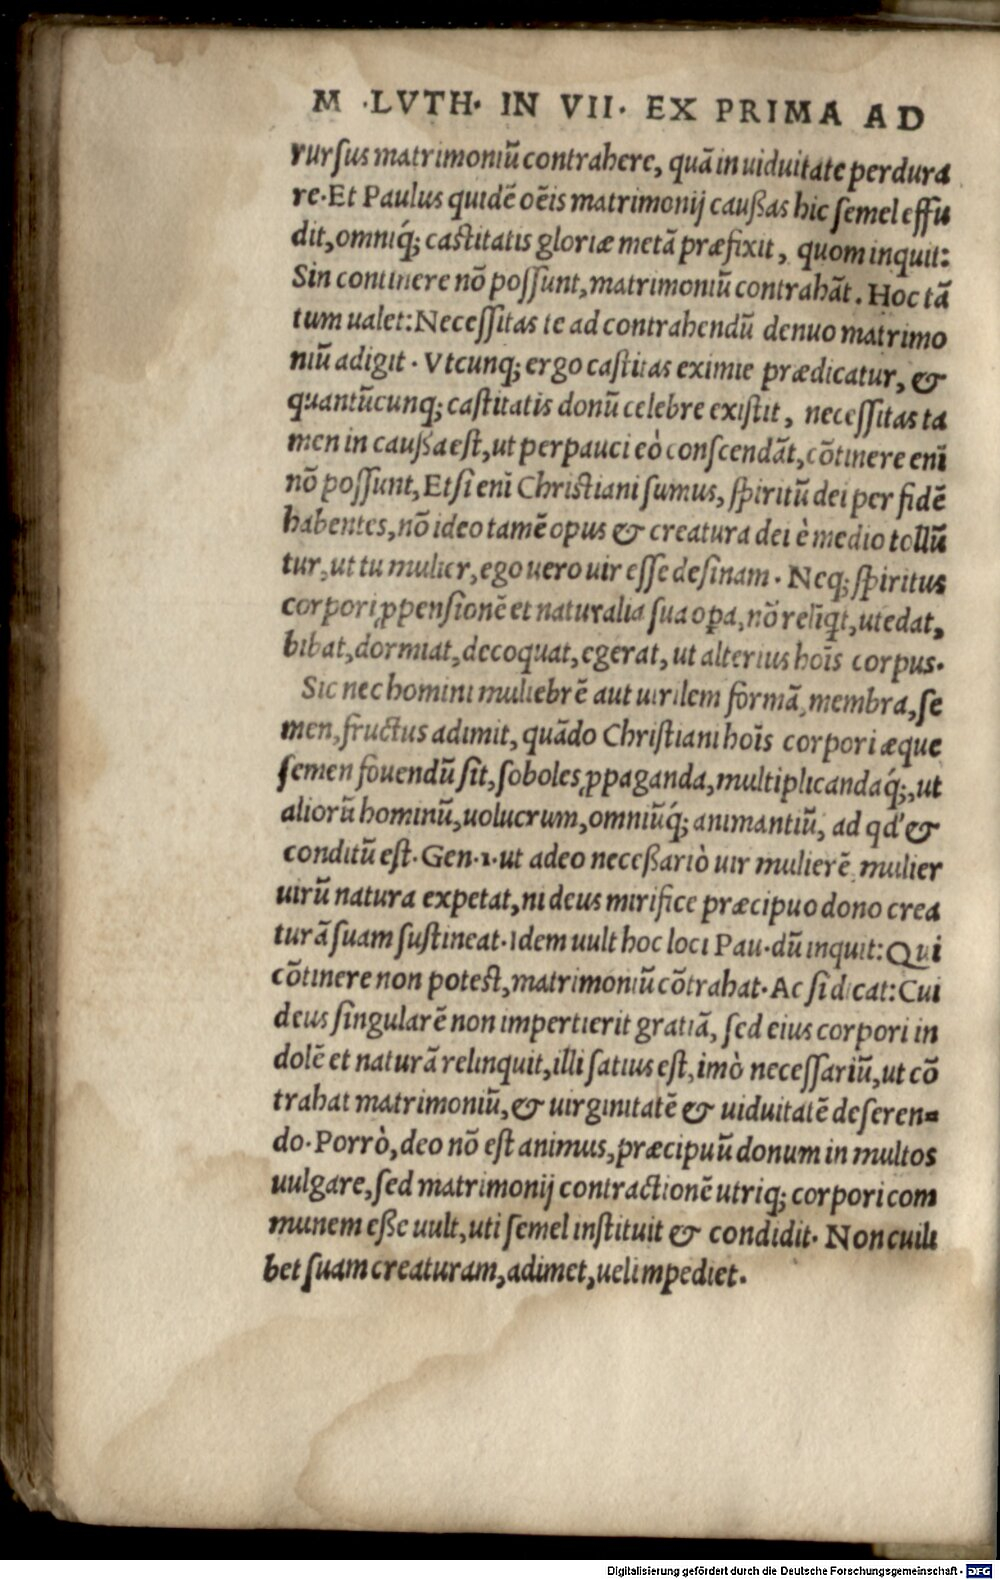 M ·LVTH· IN VII· EX PRIMA AD
rursus matrimoniũ contrahere, quã in uiduitate perdura
re·Et Paulus quidẽ oẽis matrimonij caußas hic semel effu
dit, omniq́; castitatis gloriæ metã præfixit, quom inquit:
Sin continere nõ possunt, matrimoniũ contrahãt. Hoc tã
tum ualet: Necessitas te ad contrahendũ denuo matrimo
niũ adigit · Vtcunq; ergo castitas eximie prædicatur, &
quantũcunq; castitatis donũ celebre existit, necessitas ta
men in caußa est, ut perpauci eò conscendãt, cõtinere enĩ
nõ possunt, Etsi enĩ Christiani sumus, spiritũ dei per fidẽ
habentes, nõ ideo tamẽ opus & creatura dei è medio tollũ
tur, ut tu mulier, ego uero uir esse desinam · Neq; spiritus
corpori ꝓpensionẽ et naturalia sua oꝑa, nõ relĩqt, ut edat,
bibat, dormiat, decoquat, egerat, ut alterius hoĩs corpus·
Sic nec homini muliebrẽ aut uirilem formã, membra, se
men, fructus adimit, quãdo Christiani hoĩs corpori æque
semen fouendũ sit, soboles ꝓpaganda, multiplicandaq́;, ut
aliorũ hominũ, uolucrum, omniũq́; animantiũ, ad qd' &
conditũ est· Gen·1· ut adeo neceßariò uir mulierẽ, mulier
uirũ natura expetat, ni deus mirifice præcipuo dono crea
turã suam sustineat· Idem uult hoc loci Pau· dũ inquit: Qui
cõtinere non potest, matrimoniũ cõtrahat· Ac si dicat: Cui
deus singularẽ non impertierit gratiã, sed eius corpori in
dolẽ et naturã relinquit, illi satius est, imò necessariũ, ut cõ
trahat matrimoniũ, & uirginitatẽ & uiduitatẽ deseren=
do· Porrò, deo nõ est animus, præcipuũ donum in multos
uulgare, sed matrimonij contractionẽ utriq; corpori com
munem eße uult, uti semel instituit & condidit· Non cuili
bet suam creaturam, adimet, uel impediet.
Digitalisierung gefördert durch die Deutsche Forschungsgemeinschaft - DFG